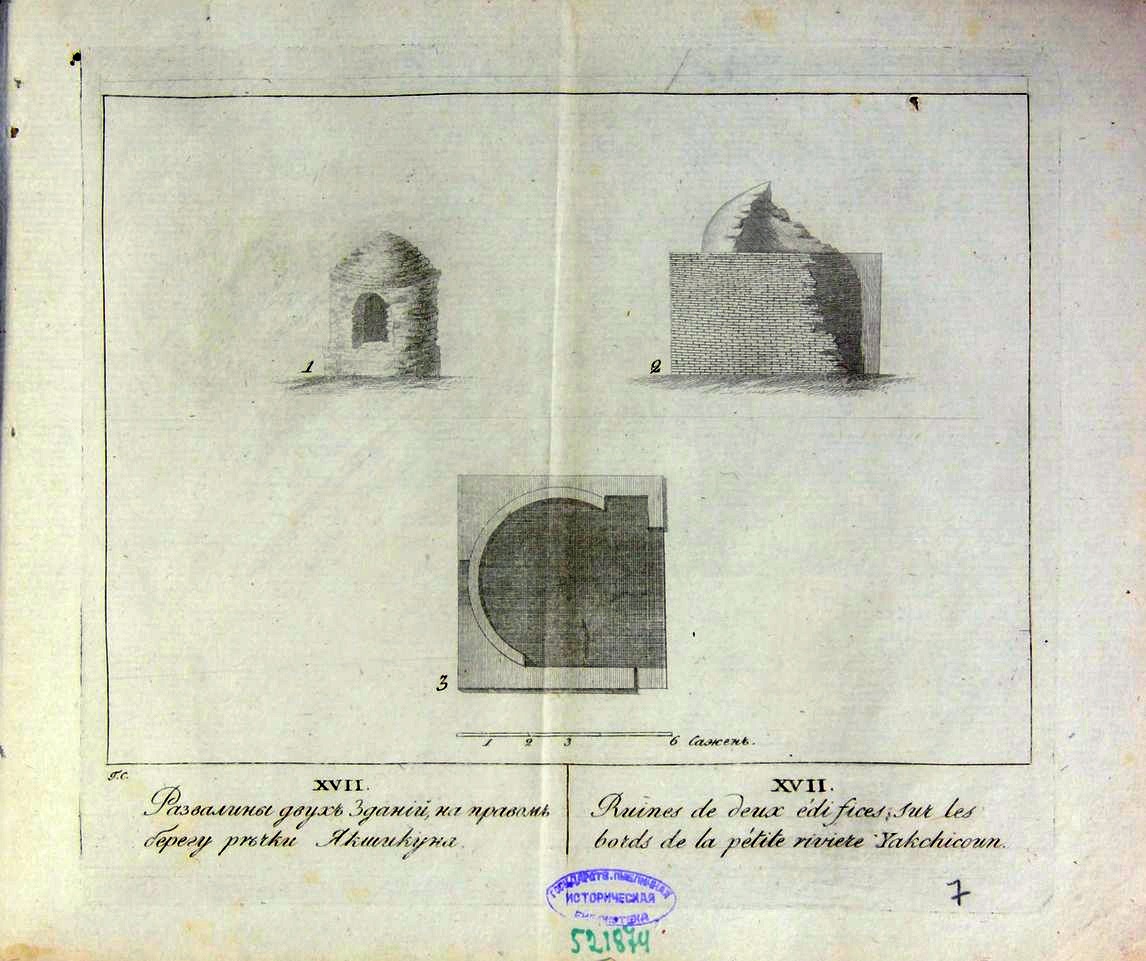 1
2
3
1 2 3 6 Саженъ.
Г.С.
XVII.
Развалины двухъ Зданій, на правомъ
берегу рѣчки Якшикуна.
XVII.
Ruines de deux édifices, sur les
bords de la pétite riviere Yakchicoun.
ГОСУДАРСТВ. ПУБЛИЧНАЯ
ИСТОРИЧЕСКАЯ
БИБЛИОТЕКА
521874
7